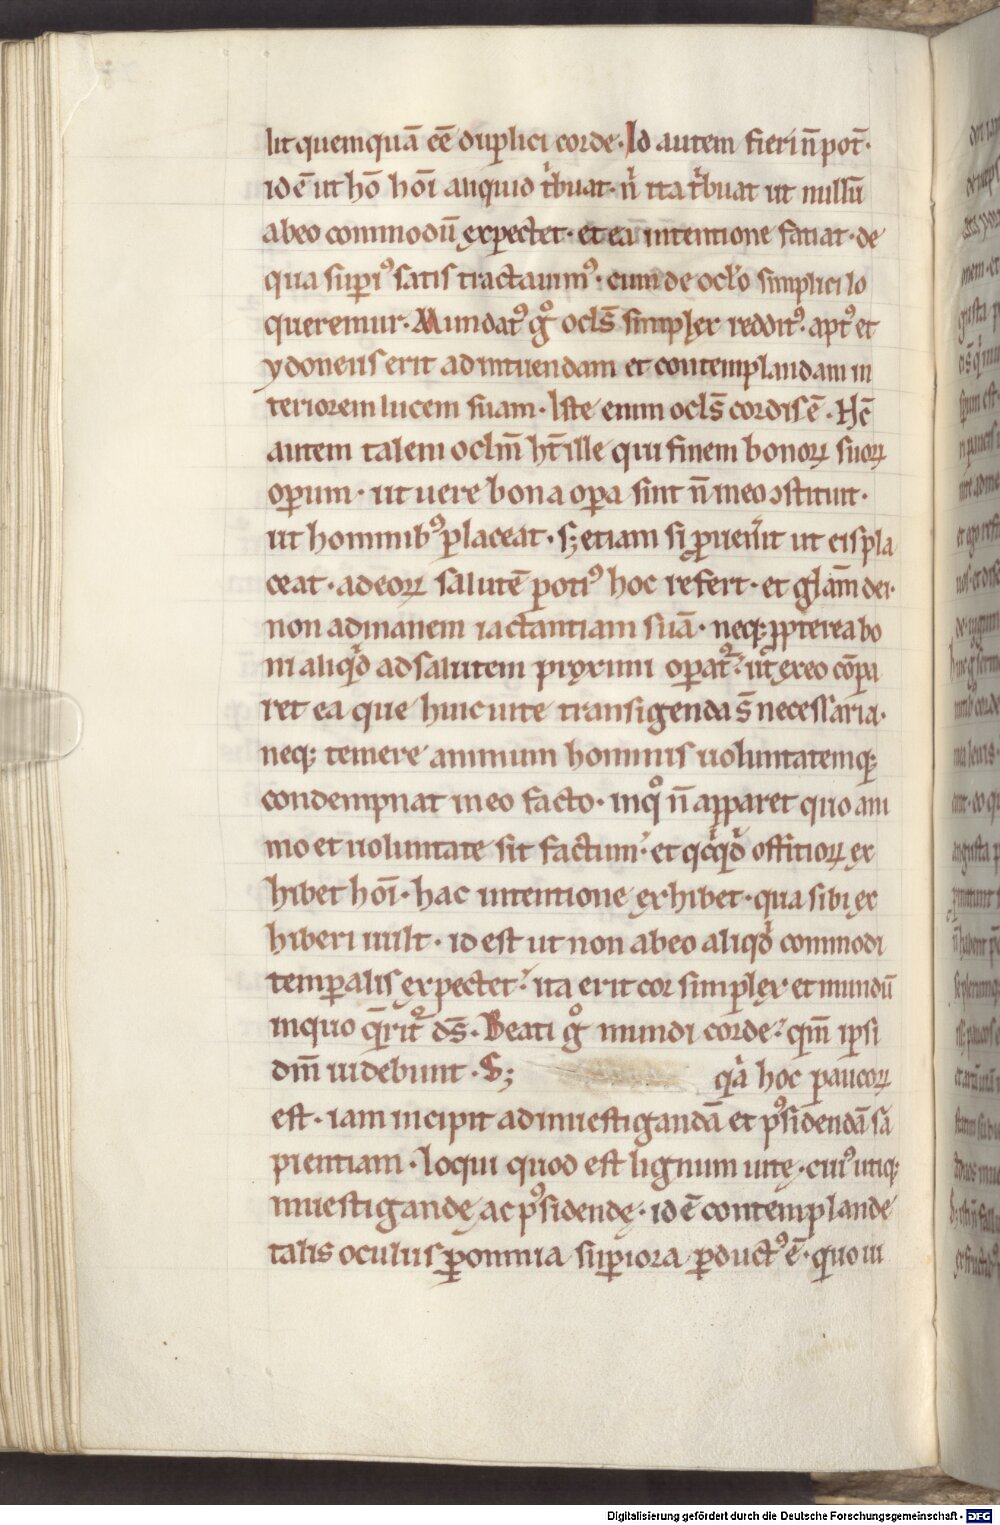 lit quemquā eē duplici corde. Id autem fieri n̄ pot̄.
id ē ut hō hōi aliquid t͛buat. n͛ ita t͛buat ut nullū
ab eo commodū expectet. et ea intentione faciat. de
qua supi᷒ satis tractauim᷒. cum de oclo simplici lo
queremur. Mundat᷒ gͦ ocls̄ simplex reddit᷒. apt᷒ et
ydoneus erit ad intuendam et contemplandam in
teriorem lucem suam. Iste enim ocls̄ cordis ē. Hc̄
autem talem oclm̄ ht̄ ille qui finem bonoꝝ suoꝝ
operum. ut uere bona opa sint n̄ in eo ꝯstituit.
ut hominib᷒ placeat. sꝫ etiam si ꝓuen͛it ut eis pla
ceat. ad eoꝝ salutē poti᷒ hoc refert. et glām dei.
non ad inanem iactantiam suā. neqꝫ ꝓpterea bo
ni aliqͥd ad salutem proximi opat᷒. ut ex eo cōpa
ret ea que huic uite transigenda s̄ necessaria.
neqꝫ temere animum hominis uoluntatemqꝫ
condempnat in eo facto. in qͦ n̄ apparet quo ani
mo et uoluntate sit factum. et qͥcqͥd offitioꝝ ex
hibet hōi. hac intentione exhibet. qua sibi ex
hiberi uult. id est ut non ab eo aliqͥd commodi
temꝑalis expectet. ita erit cor simplex et mundū
in quo q̄rit᷒ ds̄. Beati gͦ mundi corde. qm̄ ipsi
dm̄ uidebunt. Sꝫ qͣ hoc paucoꝝ
est. iam incipit ad inuestigandā et p᷒sidendā sa
pientiam. loqui quod est lignum uite. cui᷒ utiqꝫ
inuestigande ac p᷒sidende. id ē contemplande
talis oculus ꝑ omnia supiora ꝑduct᷒ ē. quo ui
Digitalisierung gefördert durch die Deutsche Forschungsgemeinschaft - DFG